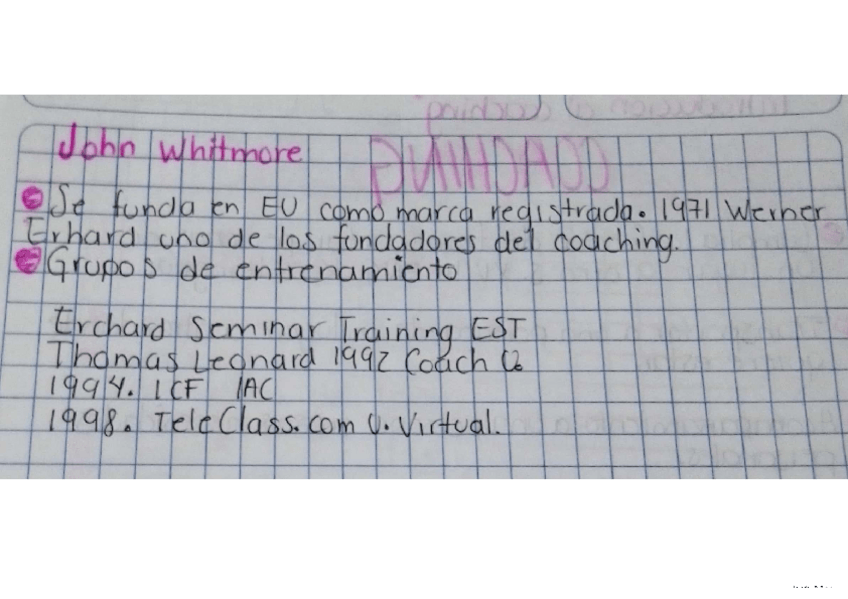 John Whitmore
Se funda en EU como marca registrada. 1971 Werner
Erhard uno de los fundadores del coaching.
Grupos de entrenamiento
Erchard Seminar Training EST
Thomas Leonard 1992 Coach U.
1994. ICF IAC
1998. TeleClass.com U. Virtual.